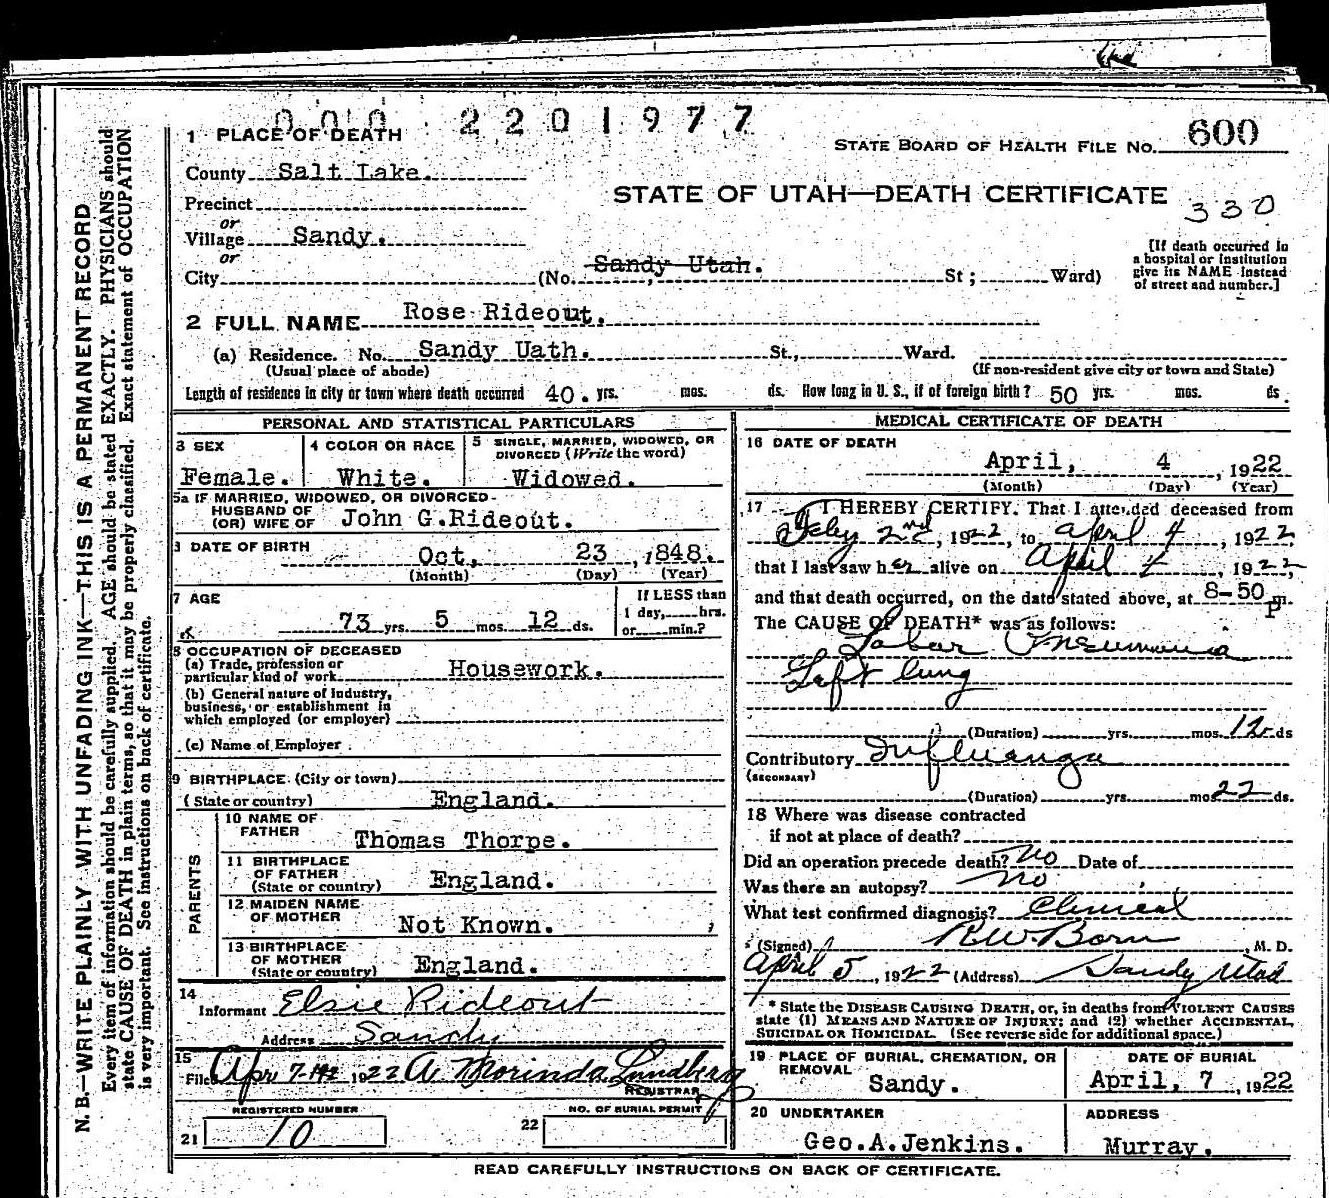 000 2201977
1 PLACE OF DEATH
STATE BOARD OF HEALTH FILE No. 600
County Salt Lake.
STATE OF UTAH—DEATH CERTIFICATE
330
Precinct
or
Village Sandy.
or
City (No. Sandy Utah. St; Ward)
[If death occurred in
a hospital or institution
give its NAME instead
of street and number.]
2 FULL NAME Rose Rideout.
(a) Residence. No. Sandy Uath. St., Ward.
(Usual place of abode) (If non-resident give city or town and State)
Length of residence in city or town where death occurred 40. yrs. mos. ds. How long in U. S., if of foreign birth? 50 yrs. mos. ds.
PERSONAL AND STATISTICAL PARTICULARS
3 SEX
Female.
4 COLOR OR RACE
White.
5 SINGLE, MARRIED, WIDOWED, OR
DIVORCED (Write the word)
Widowed.
5a IF MARRIED, WIDOWED, OR DIVORCED
HUSBAND OF
(OR) WIFE OF John G.Rideout.
DATE OF BIRTH
Oct, 23 ,1848.
(Month) (Day) (Year)
7 AGE
73 yrs. 5 mos. 12 ds.
If LESS than
1 day, hrs.
or min.?
8 OCCUPATION OF DECEASED
(a) Trade, profession or
particular kind of work Housework.
(b) General nature of industry,
business, or establishment in
which employed (or employer)
(c) Name of Employer
9 BIRTHPLACE (City or town)
(State or country) England.
PARENTS
10 NAME OF
FATHER
Thomas Thorpe.
11 BIRTHPLACE
OF FATHER
(State or country) England.
12 MAIDEN NAME
OF MOTHER Not Known.
13 BIRTHPLACE
OF MOTHER
(State or country) England.
14
Informant Elsie Rideout
Address Sandy
15
File Apr 7 1922 A. Morinda Lundberg
REGISTRAR
REGISTERED NUMBER
21 10
NO. OF BURIAL PERMIT
22
MEDICAL CERTIFICATE OF DEATH
16 DATE OF DEATH
April, 4 , 1922
(Month) (Day) (Year)
17 I HEREBY CERTIFY. That I attended deceased from
Feby 2nd, 1922, to April 4, 1922
that I last saw her alive on April 4, 1922
and that death occurred, on the date stated above, at 8-50 P m.
The CAUSE OF DEATH* was as follows:
Lobar Pneumonia
Left lung
(Duration) yrs. mos. 12 ds
Contributory Influanza
(SECONDARY)
(Duration) yrs. mo 22 ds.
18 Where was disease contracted
if not at place of death?
Did an operation precede death? No Date of
Was there an autopsy? No
What test confirmed diagnosis? Clinical
(Signed) R.W. Born, M. D.
April 5, 1922 (Address) Sandy Utah
* State the DISEASE CAUSING DEATH, or, in deaths from VIOLENT CAUSES
state (1) MEANS AND NATURE OF INJURY; and (2) whether ACCIDENTAL,
SUICIDAL or HOMICIDAL. (See reverse side for additional space.)
19 PLACE OF BURIAL, CREMATION, OR
REMOVAL
Sandy.
DATE OF BURIAL
April, 7 , 1922
20 UNDERTAKER
Geo.A.Jenkins.
ADDRESS
Murray.
READ CAREFULLY INSTRUCTIONS ON BACK OF CERTIFICATE.
N. B.—WRITE PLAINLY WITH UNFADING INK—THIS IS A PERMANENT RECORD
Every item of information should be carefully supplied. AGE should be stated EXACTLY. PHYSICIANS should
state CAUSE OF DEATH in plain terms, so that it may be properly classified. Exact statement of OCCUPATION
is very important. See instructions on back of certificate.